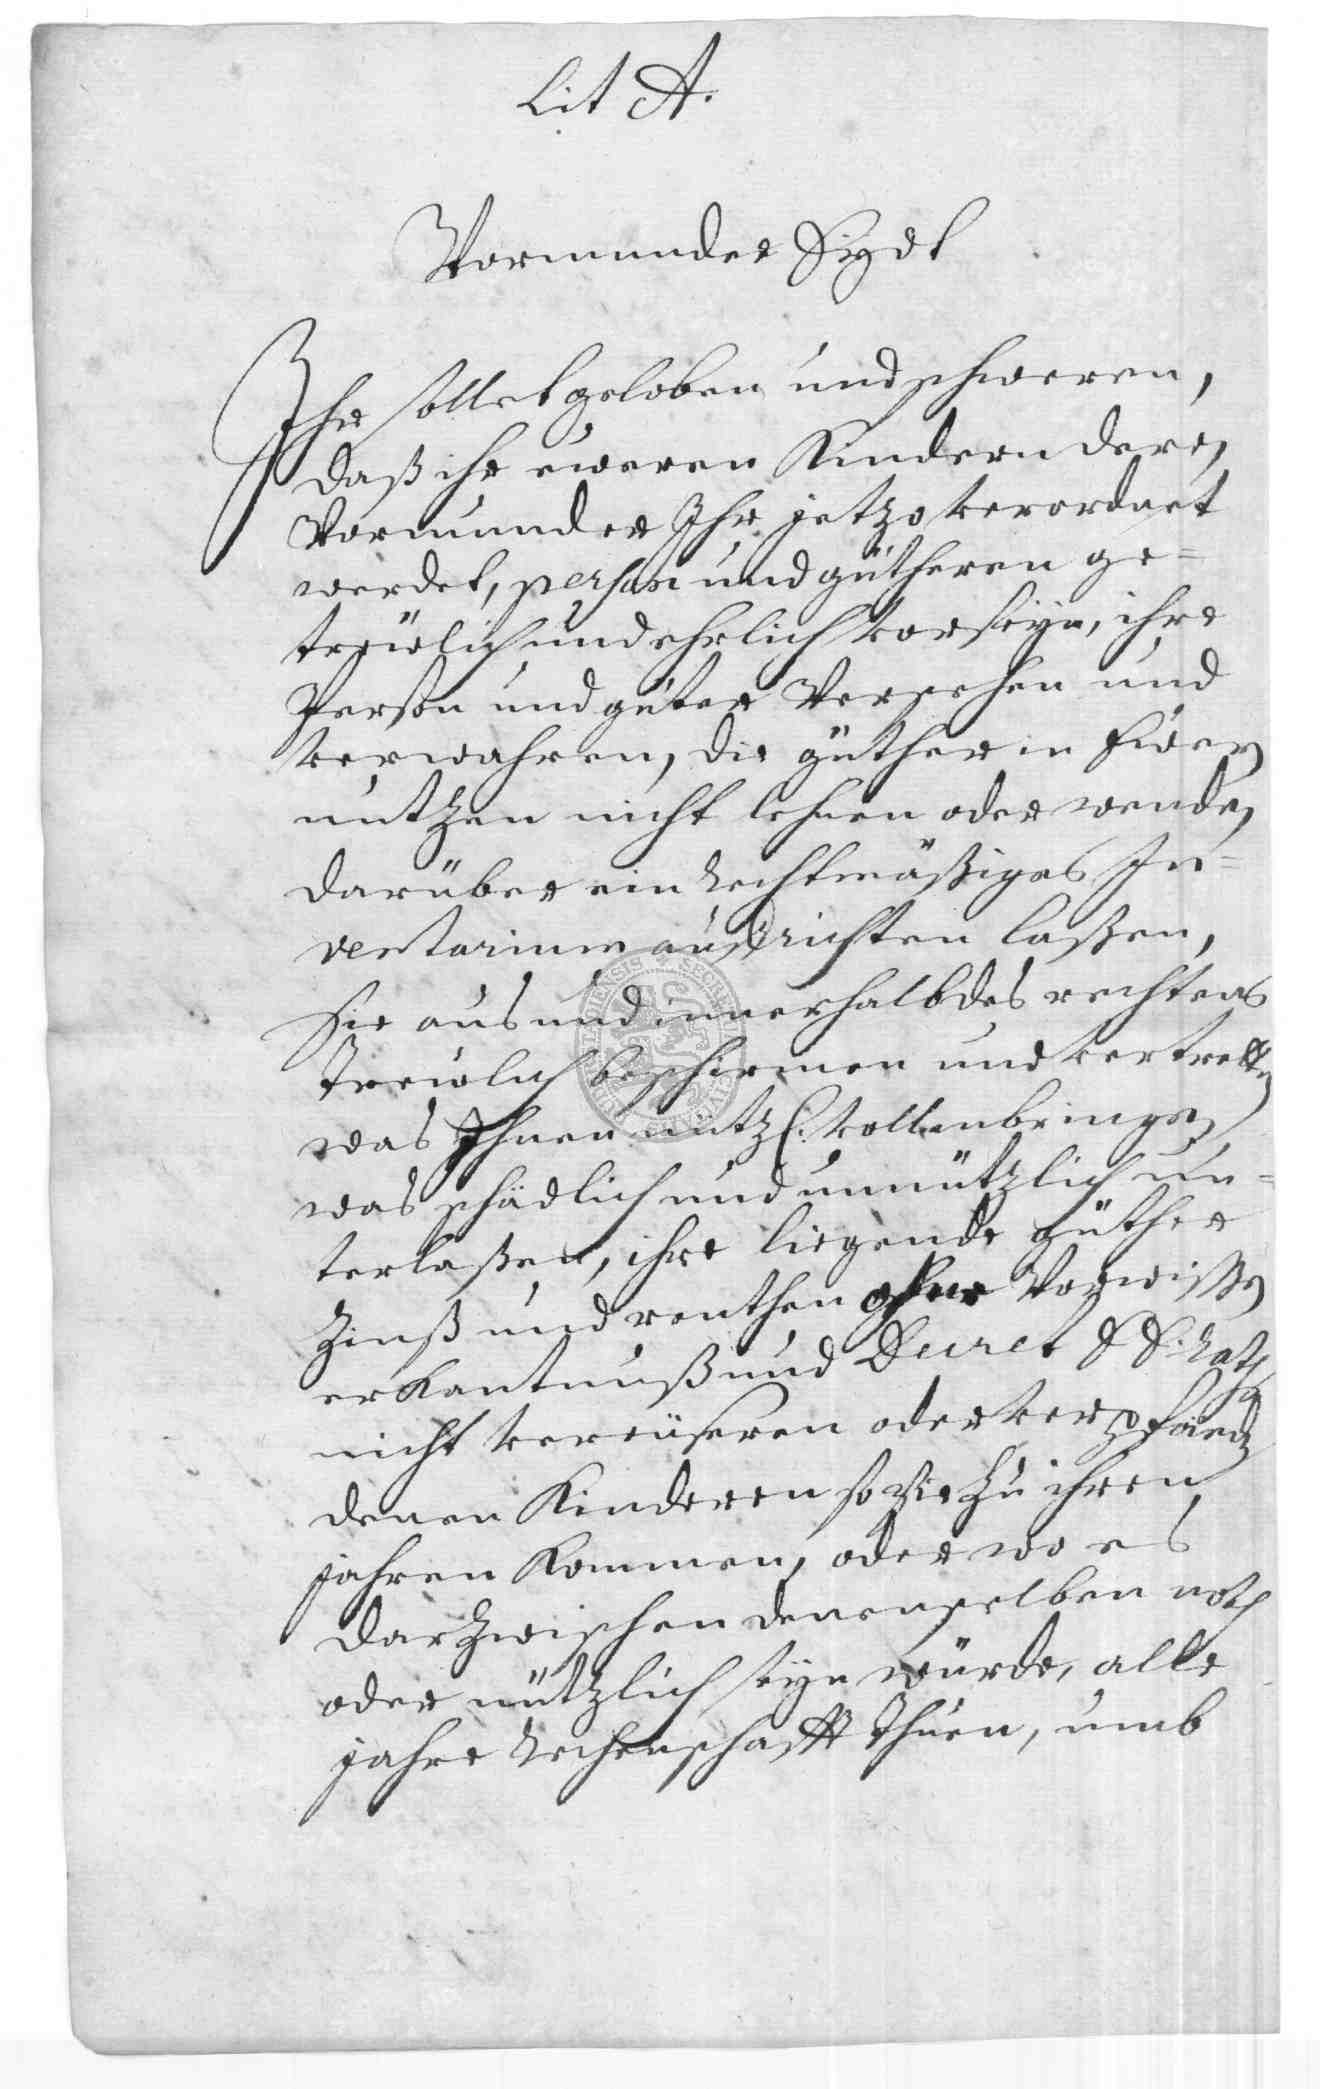 Lit A.
Vormunder Eÿdt
Ihr sollet geloben und schweren,
daß ihr eweren Kindern deren
Vormunder Ihr jetzo verordnet
werdet, person und gütheren ge=
treülich und ehrlich vorseÿn, ihre
Person und güter Versehen und
verwahren, die güther in Ewern
nutzen nicht kehren oder wenden
darüber ein rechtmäßiges In=
ventarium auffrichten laßen,
Sie aus und innerhalb des rechtens
Treülich beschirmen und vertretten
was Ihnen nützl: vollenbringen
was schädlich und unnützlich un=
terlaßen, ihre liegende güther
Zinß und renthen ohne Vorwißen
erkantnuß und Decret E E: Raths
nicht vereüseren oder verpfänden
denen Kinderen so sie zu ihren
jahren kommen, oder wo es
darzwischen denenselben noth
oder nützlich seÿn würde, alle
jahre Rechenschafft Thuen, umb
SECRETUM CIVIUM